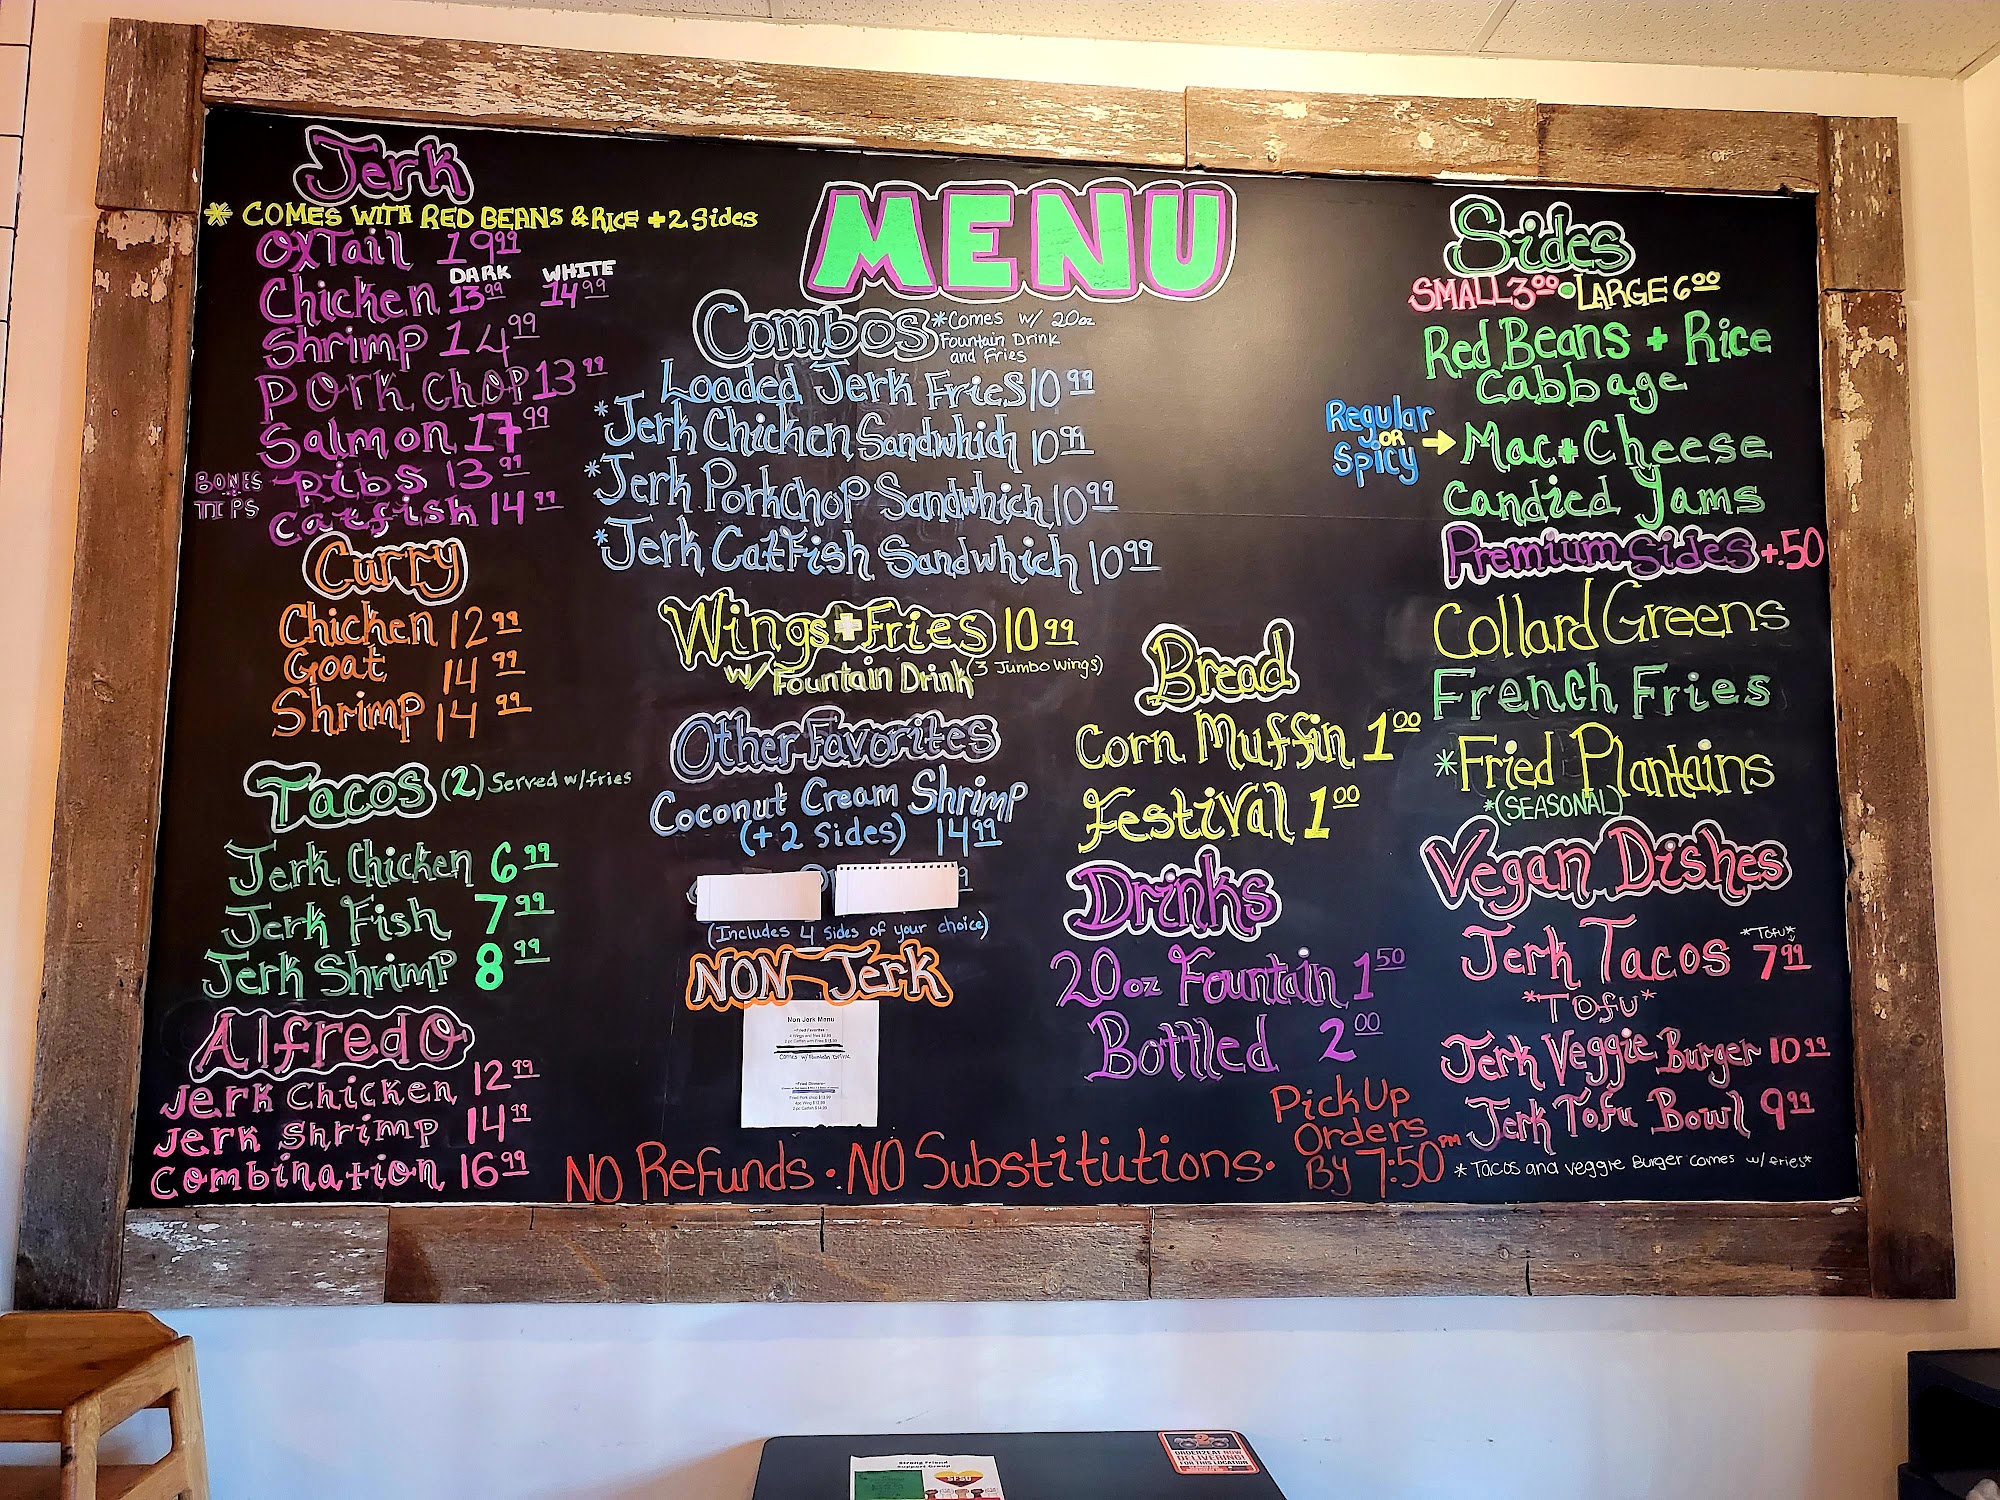 MENU
Jerk
* COMES WITH RED BEANS & RICE + 2 Sides
OxTail 19 99
DARK WHITE
Chicken 13 99 14 99
Shrimp 14 99
Pork Chop 13 99
Salmon 17 99
BONES TIPS Ribs 13 99
Catfish 14 99
Curry
Chicken 12 99
Goat 14 99
Shrimp 14 99
Tacos (2) Served w/fries
Jerk Chicken 6 99
Jerk Fish 7 99
Jerk Shrimp 8 99
Alfredo
Jerk Chicken 12 99
Jerk Shrimp 14 99
Combination 16 99
Combos *Comes w/ 20oz
Fountain Drink
and Fries
Loaded Jerk Fries 10 99
*Jerk Chicken Sandwhich 10 99
*Jerk Porkchop Sandwhich 10 99
*Jerk CatFish Sandwhich 10 99
Wings + Fries 10 99
w/ Fountain Drink (3 Jumbo Wings)
Other Favorites
Coconut Cream Shrimp
(+ 2 Sides) 14 99
(Includes 4 sides of your choice)
NON-Jerk
Non Jerk Menu
~Fried Favorites~
Comes w/ Fountain Drink
~Fried Dinners~
Fried Pork chop $13.99
4pc Wing $12.99
2 pc Catfish $14.99
Bread
Corn Muffin 1 00
Festival 1 00
Drinks
20oz Fountain 1 50
Bottled 2 00
Sides
SMALL 3 00 • LARGE 6 00
Red Beans + Rice
Cabbage
Regular
OR
Spicy → Mac + Cheese
Candied Yams
Premium Sides +.50
Collard Greens
French Fries
*Fried Plantains
*(SEASONAL)
Vegan Dishes
Jerk Tacos *Tofu* 7 99
*Tofu*
Jerk Veggie Burger 10 99
Jerk Tofu Bowl 9 99
* Tacos and Veggie Burger comes w/ fries*
NO Refunds • NO Substitutions •
PickUp
Orders
By 7:50 PM
Strong Friend
Support Group
SFSG
ORDER2EAT NOW
DELIVERING!
FOR THIS LOCATION